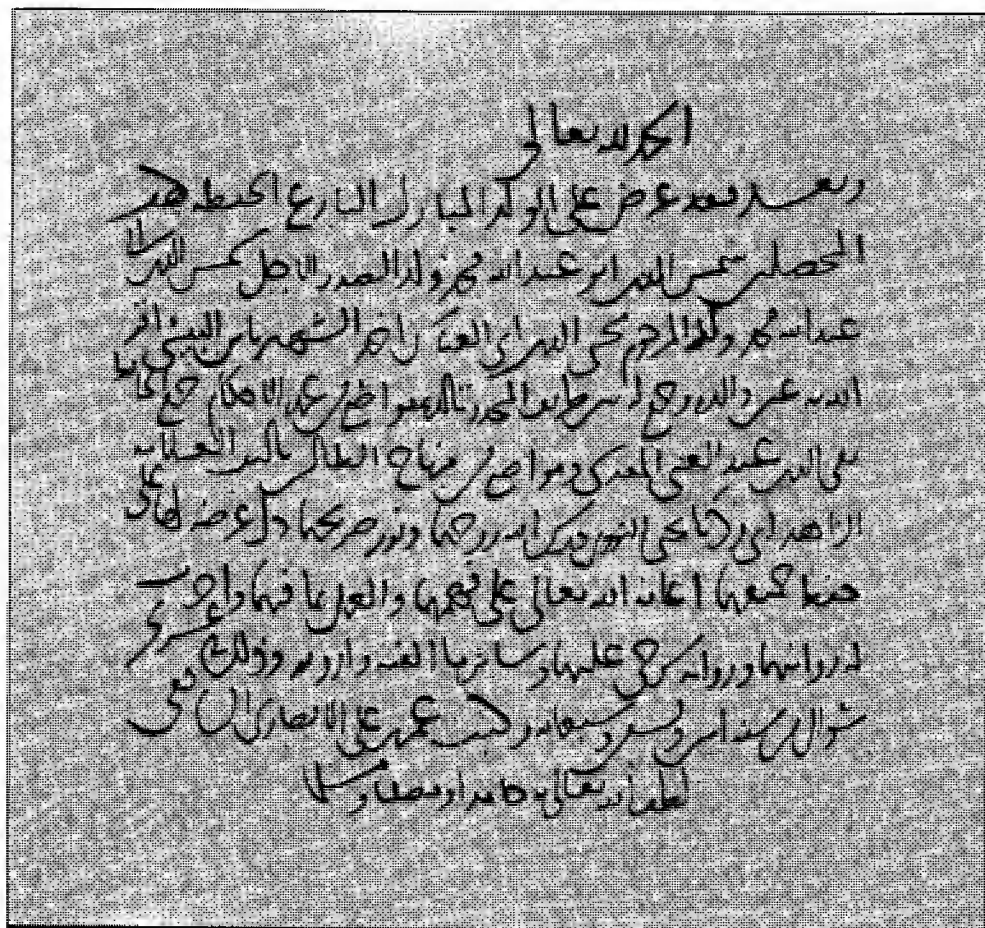 الحمد لله تعالى
وبعد فقد عرض علي الولد المبارك البارع الحفظة
المحصل شمس الدين ابو عبد الله محمد ولد الصدر الاجل شمس الدين
عبد الله محمد ولد المرحوم محيي الدين ابي العباس احمد الشهير بابن
الله عين والديه مواضع من عمدة الاحكام جمع الحافظ
تقي الدين عبد الغني المقدسي ومواضع من منهاج الطالبين تأليف العلامة
الزاهد ابي زكريا يحيى النووي قدس الله روحهما ونور ضريحهما دل عرضه لها على
حفظ جميعها اعانه الله تعالى على فهمها والعمل بما فيها واجزت
له روايتهما ورواية شرحي عليهما وسائر ما الفته وارويه وذلك في
شوال من سنة وتسعين وسبعمائة وكتب عمر بن علي الانصاري الشافعي
لطف الله تعالى به حامدا ومصليا ومسلما